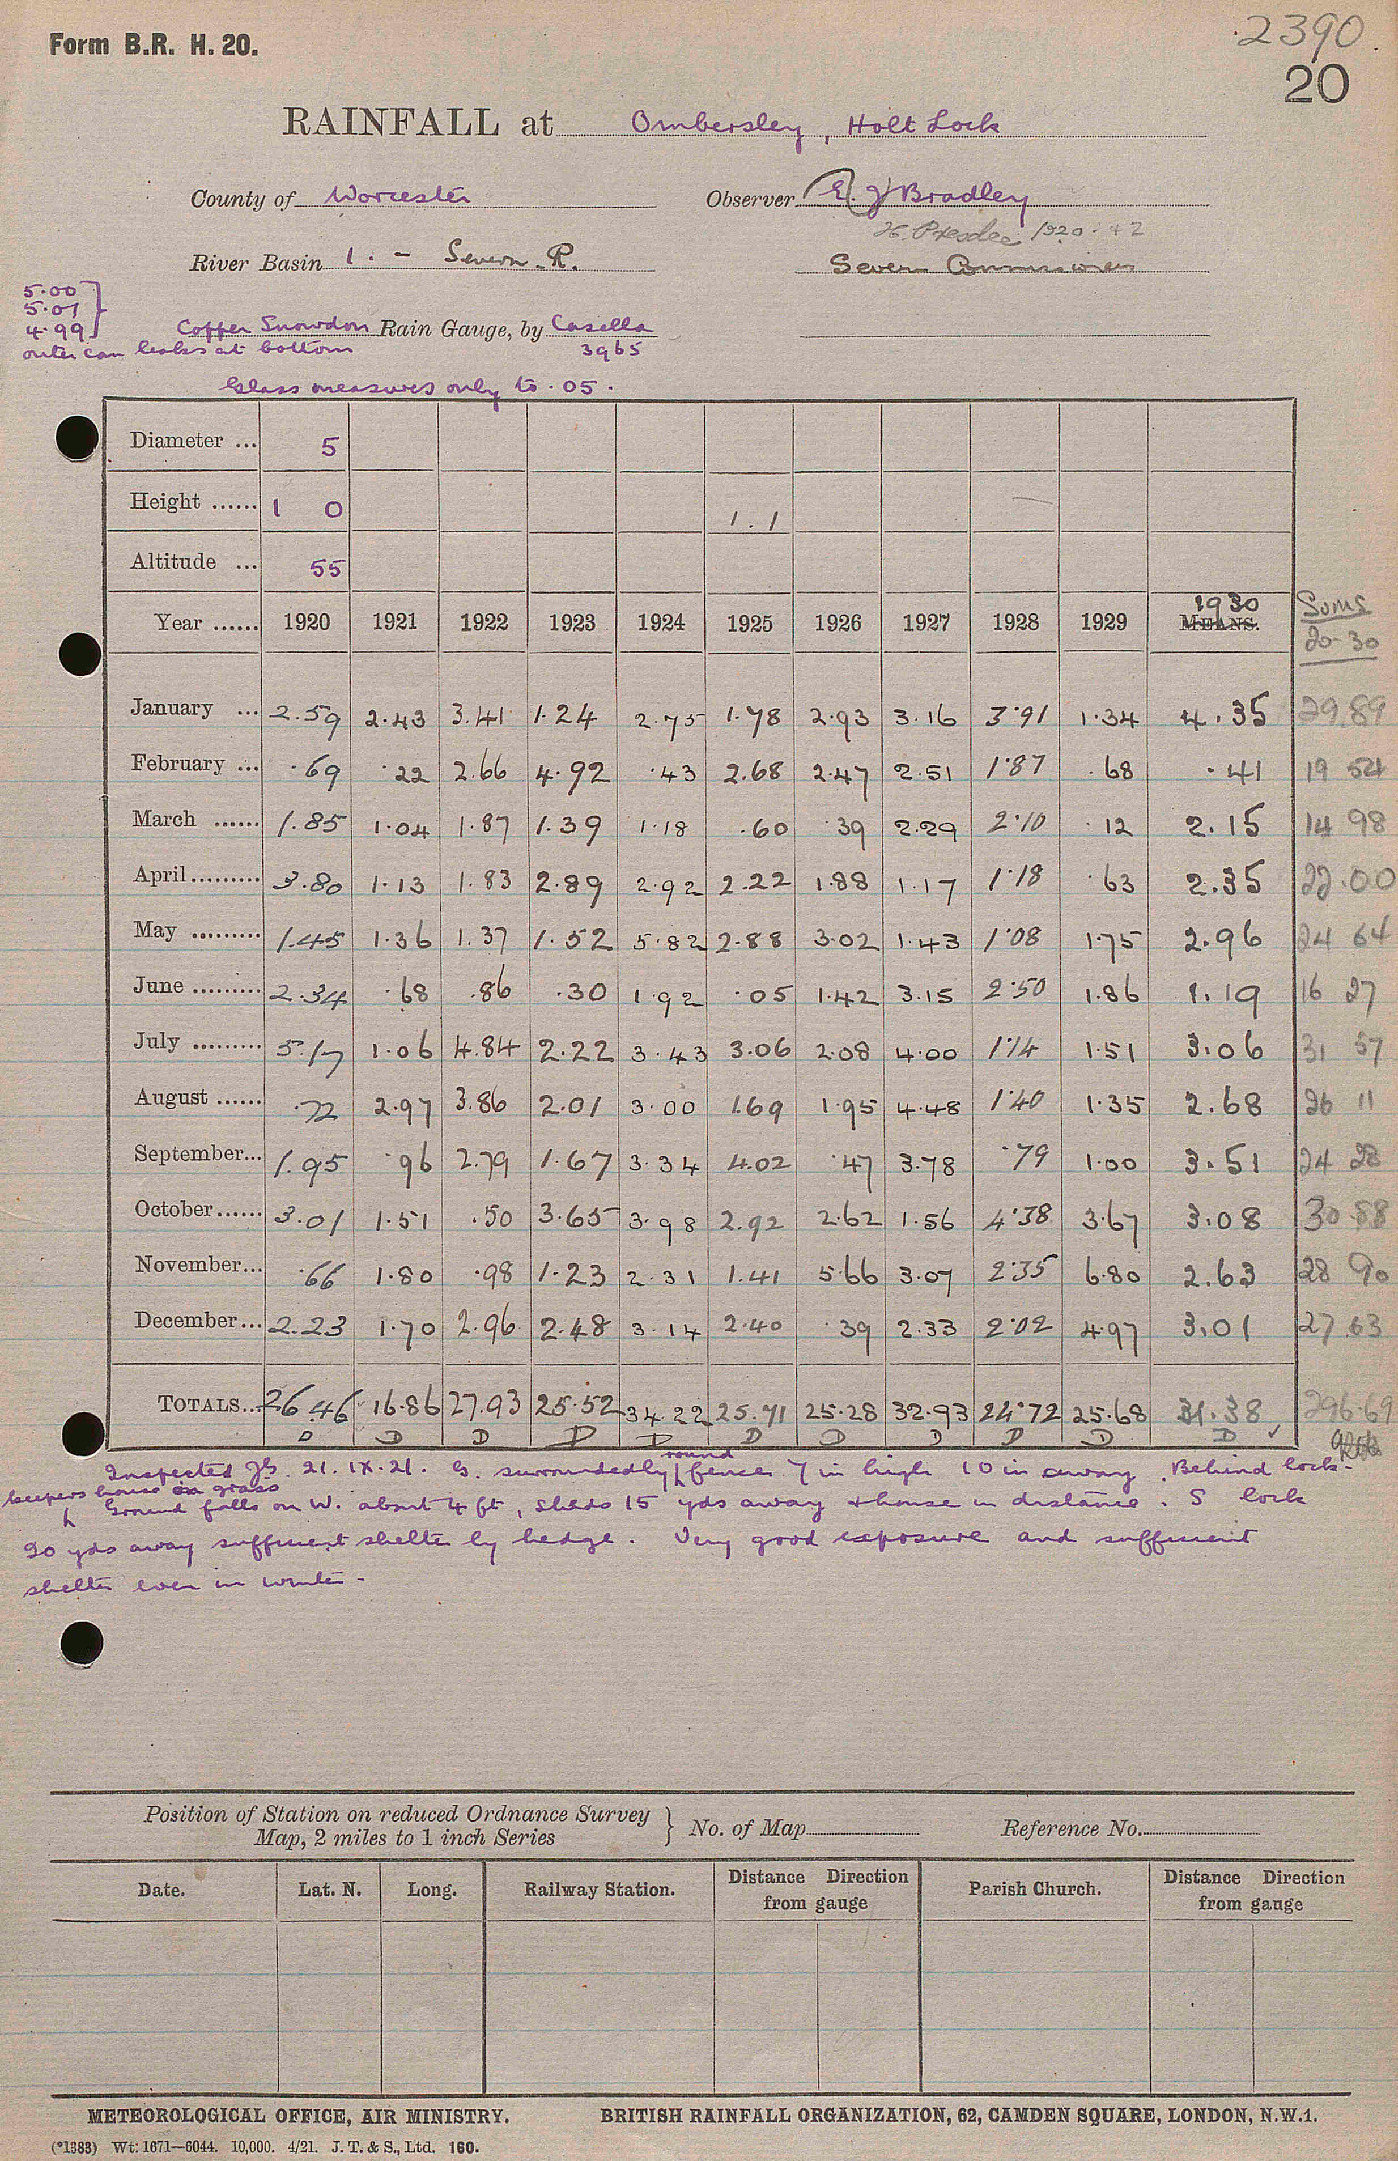 Form B.R. H. 20.
2390
20
RAINFALL at Ombersley, Holt Lock
County of Worcester Observer E. J Bradley
H. Presdee 1920-42
River Basin 1. - Severn R. Severn Commissioners
5.00
5.01
4.99
Copper Snowdon Rain Gauge, by Casella
outer can leaks at bottom 3965
Glass measures only to .05.
Diameter ... 5
Height ...... 1 0 1.1
Altitude ... 55
Year ...... 1920 1921 1922 1923 1924 1925 1926 1927 1928 1929 1930 MEANS. Sums 20-30
January ... 2.59 2.43 3.41 1.24 2.75 1.78 2.93 3.16 3.91 1.34 4.35 29.89
February ... .69 .22 2.66 4.92 .43 2.68 2.47 2.51 1.87 .68 .41 19 54
March ...... 1.85 1.04 1.87 1.39 1.18 .60 .39 2.29 2.10 .12 2.15 14 98
April ......... 3.80 1.13 1.83 2.89 2.92 2.22 1.88 1.17 1.18 .63 2.35 22.00
May ......... 1.45 1.36 1.37 1.52 5.82 2.88 3.02 1.43 1.08 1.75 2.96 24 64
June ......... 2.34 .68 .86 .30 1.92 .05 1.42 3.15 2.50 1.86 1.19 16 27
July ......... 5.17 1.06 4.84 2.22 3.43 3.06 2.08 4.00 1.14 1.51 3.06 31 57
August ...... .72 2.97 3.86 2.01 3.00 1.69 1.95 4.48 1.40 1.35 2.68 26 11
September... 1.95 .96 2.79 1.67 3.34 4.02 .47 3.78 .79 1.00 3.51 24 28
October ...... 3.01 1.51 .50 3.65 3.98 2.92 2.62 1.56 4.38 3.67 3.08 30 88
November... .66 1.80 .98 1.23 2.31 1.41 5.66 3.07 2.35 6.80 2.63 28 90
December ... 2.23 1.70 2.96 2.48 3.14 2.40 .39 2.33 2.02 4.97 3.01 27.63
TOTALS... 26.46 16.86 27.93 25.52 34.22 25.71 25.28 32.93 24.72 25.68 31.38 296.69
D D D D D D D D D D D ✓
Inspected 21. IX. 21. G. surrounded by round fence 7 in high 10 in away. Behind lock-
keepers house on grass
Ground falls on W. about 4 ft, sheds 15 yds away & house in distance. S lock
20 yds away sufficient shelter by hedge. Very good exposure and sufficient
shelter even in winter.
Position of Station on reduced Ordnance Survey
Map, 2 miles to 1 inch Series } No. of Map Reference No.
Date. Lat. N. Long. Railway Station. Distance Direction from gauge Parish Church. Distance Direction from gauge
METEOROLOGICAL OFFICE, AIR MINISTRY. BRITISH RAINFALL ORGANIZATION, 62, CAMDEN SQUARE, LONDON, N.W.1.
(*1383) Wt: 1671—6044. 10,000. 4/21. J. T. & S., Ltd. 160.